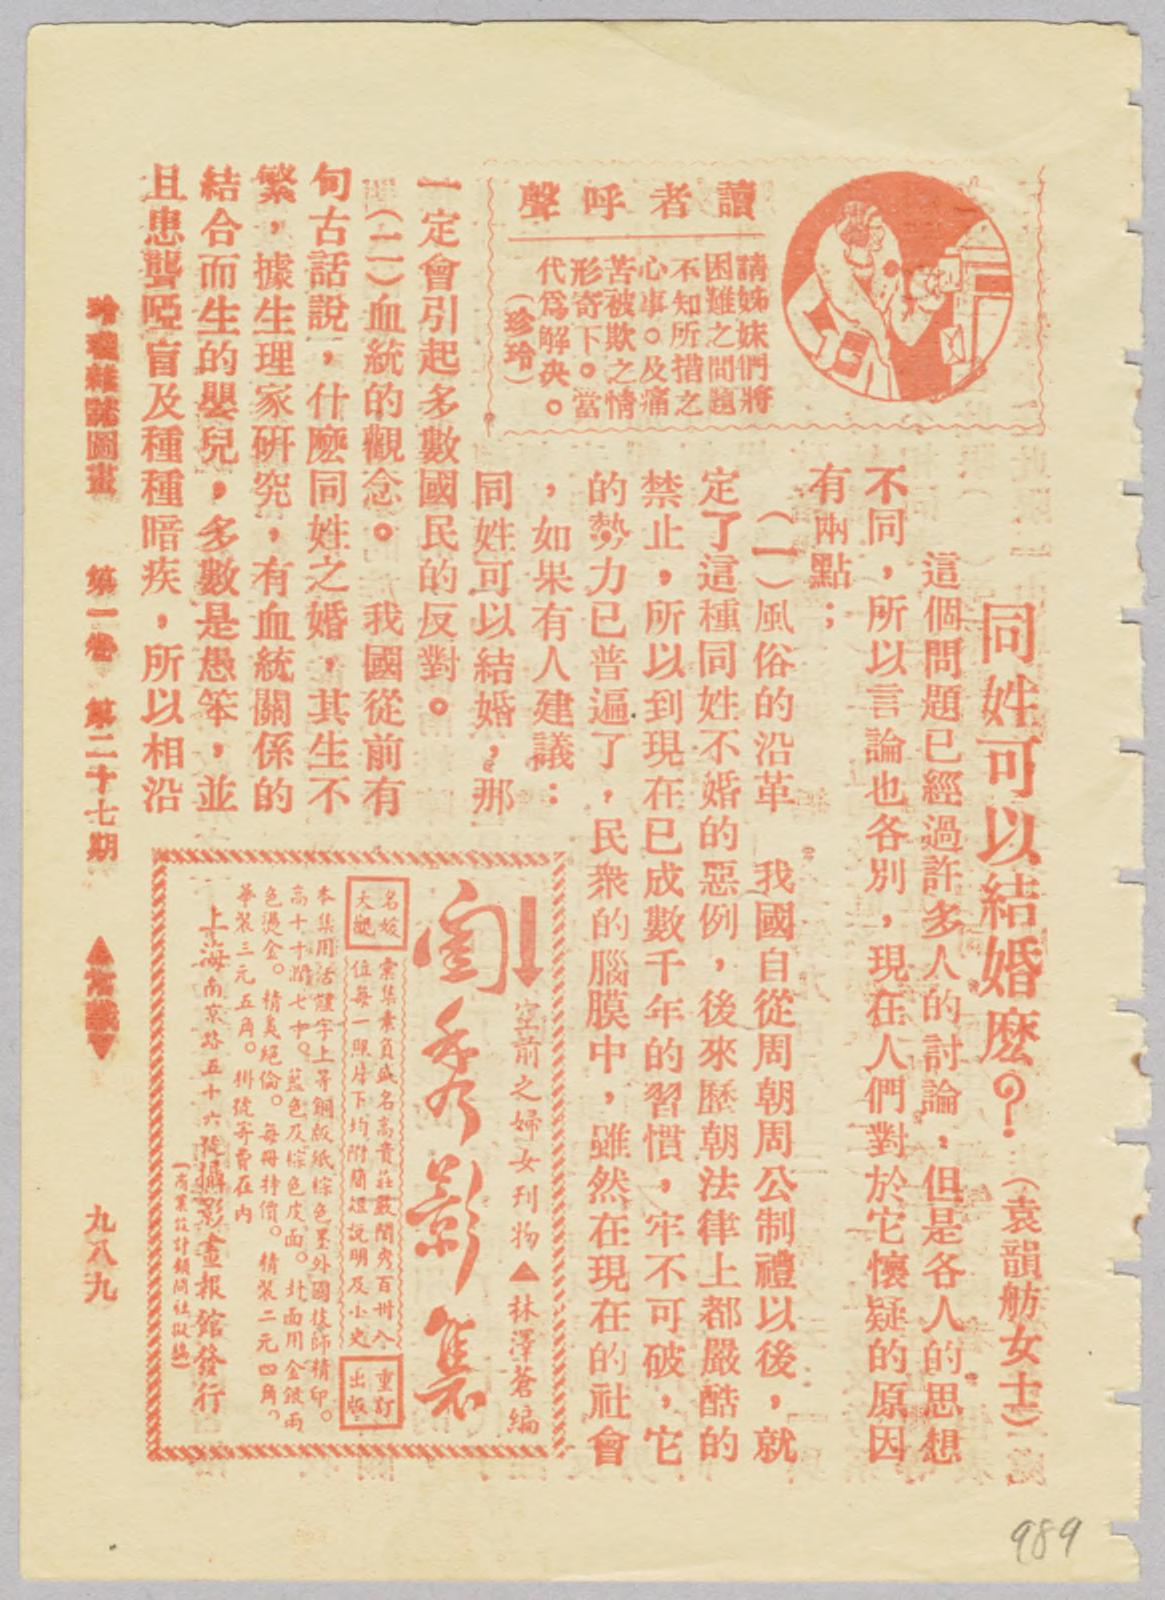 讀者呼聲
請姊妹們將
困難之問題
不知所措之
心事。及痛
苦被欺之情
形寄下。當
代爲解決。
(珍玲)
同姓可以結婚麽?(袁韻舫女士)
這個問題已經過許多人的討論,但是各人的思想
不同,所以言論也各別,現在人們對於它懷疑的原因
有兩點;
(一)風俗的沿革 我國自從周朝周公制禮以後,就
定了這種同姓不婚的惡例,後來歷朝法律上都嚴酷的
禁止,所以到現在已成數千年的習慣,牢不可破,它
的勢力已普遍了,民衆的腦膜中,雖然在現在的社會
,如果有人建議:
同姓可以結婚,那
一定會引起多數國民的反對。
(二)血統的觀念。 我國從前有
旬古話說,什麽同姓之婚,其生不
繁,據生理家研究,有血統關係的
結合而生的嬰兒,多數是愚笨,並
且患聾啞盲及種種暗疾,所以相沿
空前之婦女刊物▲林澤蒼編
閨秀影集
名媛大觀
彙集素負盛名高貴莊嚴閨秀百卅人
位每一照片下均附簡短說明及小史
重訂出版
本集用活體字上等銅版紙棕色墨外國技師精印。
高十寸濶七寸。藍色及棕色皮面。封面用金銀兩
色燙金。精美絕倫。每冊特價。精裝二元四角。
華裝三元五角。掛號寄費在內
上海南京路五十六號攝影畫報館發行
(商業設計顧問社擬編)
玲瓏雜誌圖畫 第一卷 第二十七期 ▲常識▼ 九八九
989